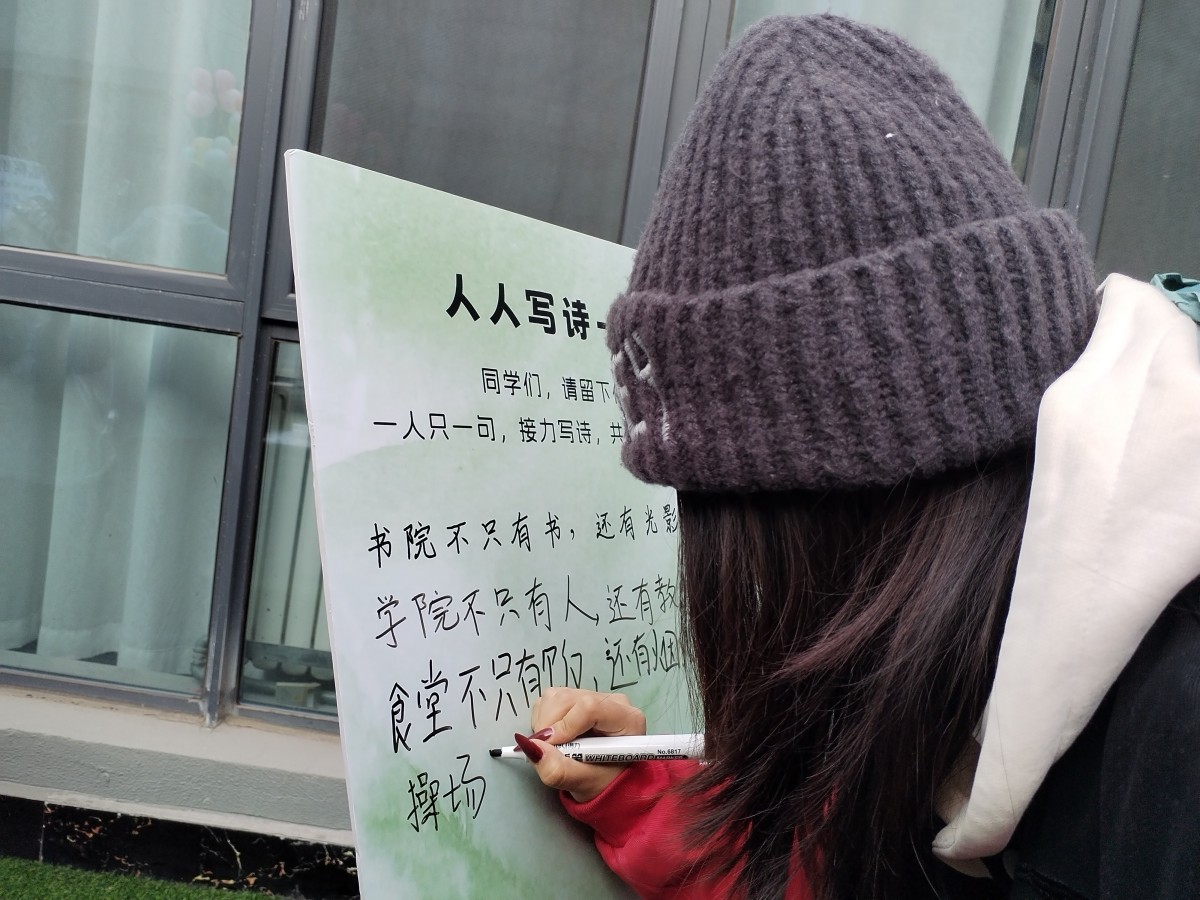 人人写诗
同学们，请留下
一人只一句，接力写诗，共
书院不只有书，还有光影
学院不只有人，还有教
食堂不只有 ，还有烟
操场
WHITEBOARD MARKER
No.6817